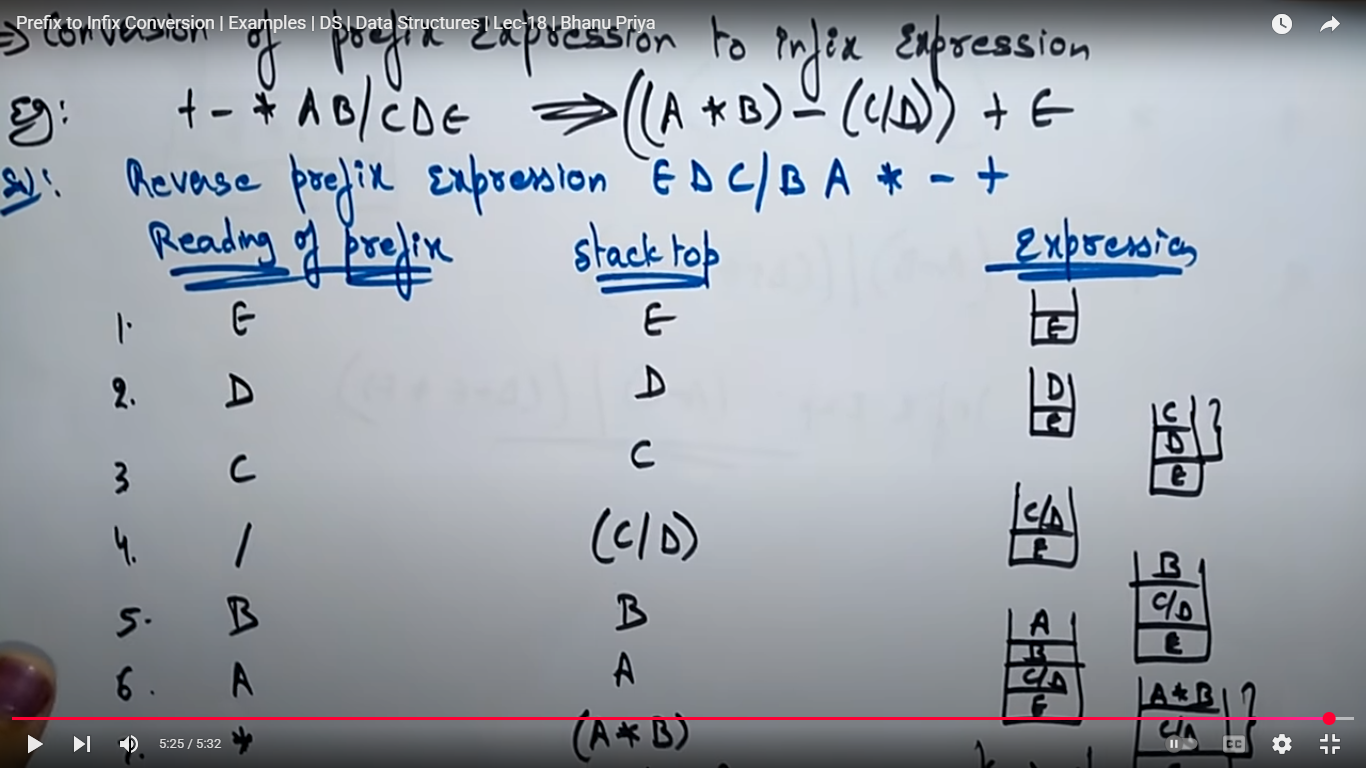 Prefix to Infix Conversion | Examples | DS | Data Structures | Lec-18 | Bhanu Priya
=> Conversion of prefix Expression to infix Expression
Eg: + - * A B / C D E ⟹ ((A * B) - (C/D)) + E
Sol: Reverse prefix Expression E D C / B A * - +
Reading of prefix Stack top Expression
1. E E E
2. D D D E
3 C C C D E
4. / (C/D) C/D E
5. B B B C/D E
6. A A A B C/D E
7. * (A * B) A * B C/D
5:25 / 5:32 CC